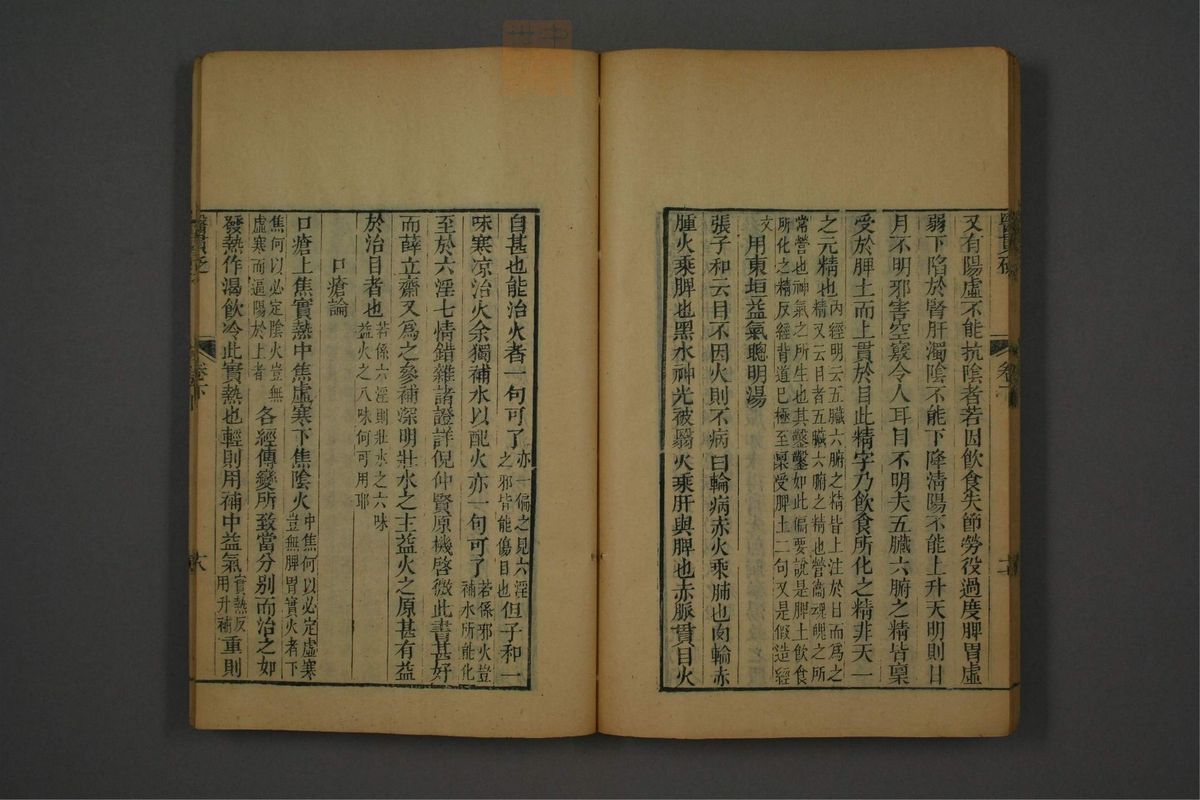 又有陽虛不能抗陰者若因飲食失節勞役過度脾胃虛
弱下陷於腎肝濁陰不能下降清陽不能上升天明則日
月不明邪害空竅令人耳目不明夫五臟六腑之精皆稟
受於脾土而上貫於目此精字乃飲食所化之精非天一
之元精也內經明云五臟六腑之精皆上注於目而為之
精又云目者五臟六腑之精也營衛魂魄之所
常營也神氣之所生也其鑿鑿如此偏要說是脾土飲食
所化之精反經背道已極至稟受脾土二句又是假造經
文
用東垣益氣聰明湯
張子和云目不因火則不病曰輪病赤火乘肺也肉輪赤
腫火乘脾也黑水神光被翳火乘肝與腎也赤脈貫目火
自甚也能治火者一句可了亦一偏之見六淫
之邪皆能傷目也但子和一
味寒凉治火余獨補水以配火亦一句可了若係邪火豈
補水所能化
至於六淫七情錯雜諸證詳倪仲賢原機啓微此書甚好
而薛立齋又為之參補深明壯水之主益火之原甚有益
於治目者也若係六淫則壯水之六味
益火之八味何可用耶
口瘡論
口瘡上焦實熱中焦虛寒下焦陰火中焦何以必定虛寒
豈無脾胃實火者下
焦何以必定陰火豈無
虛寒而逼陽於上者各經傳變所致當分別而治之如
發熱作渴飲冷此實熱也輕則用補中益氣實熱反
用升補重則
醫貫砭
卷下